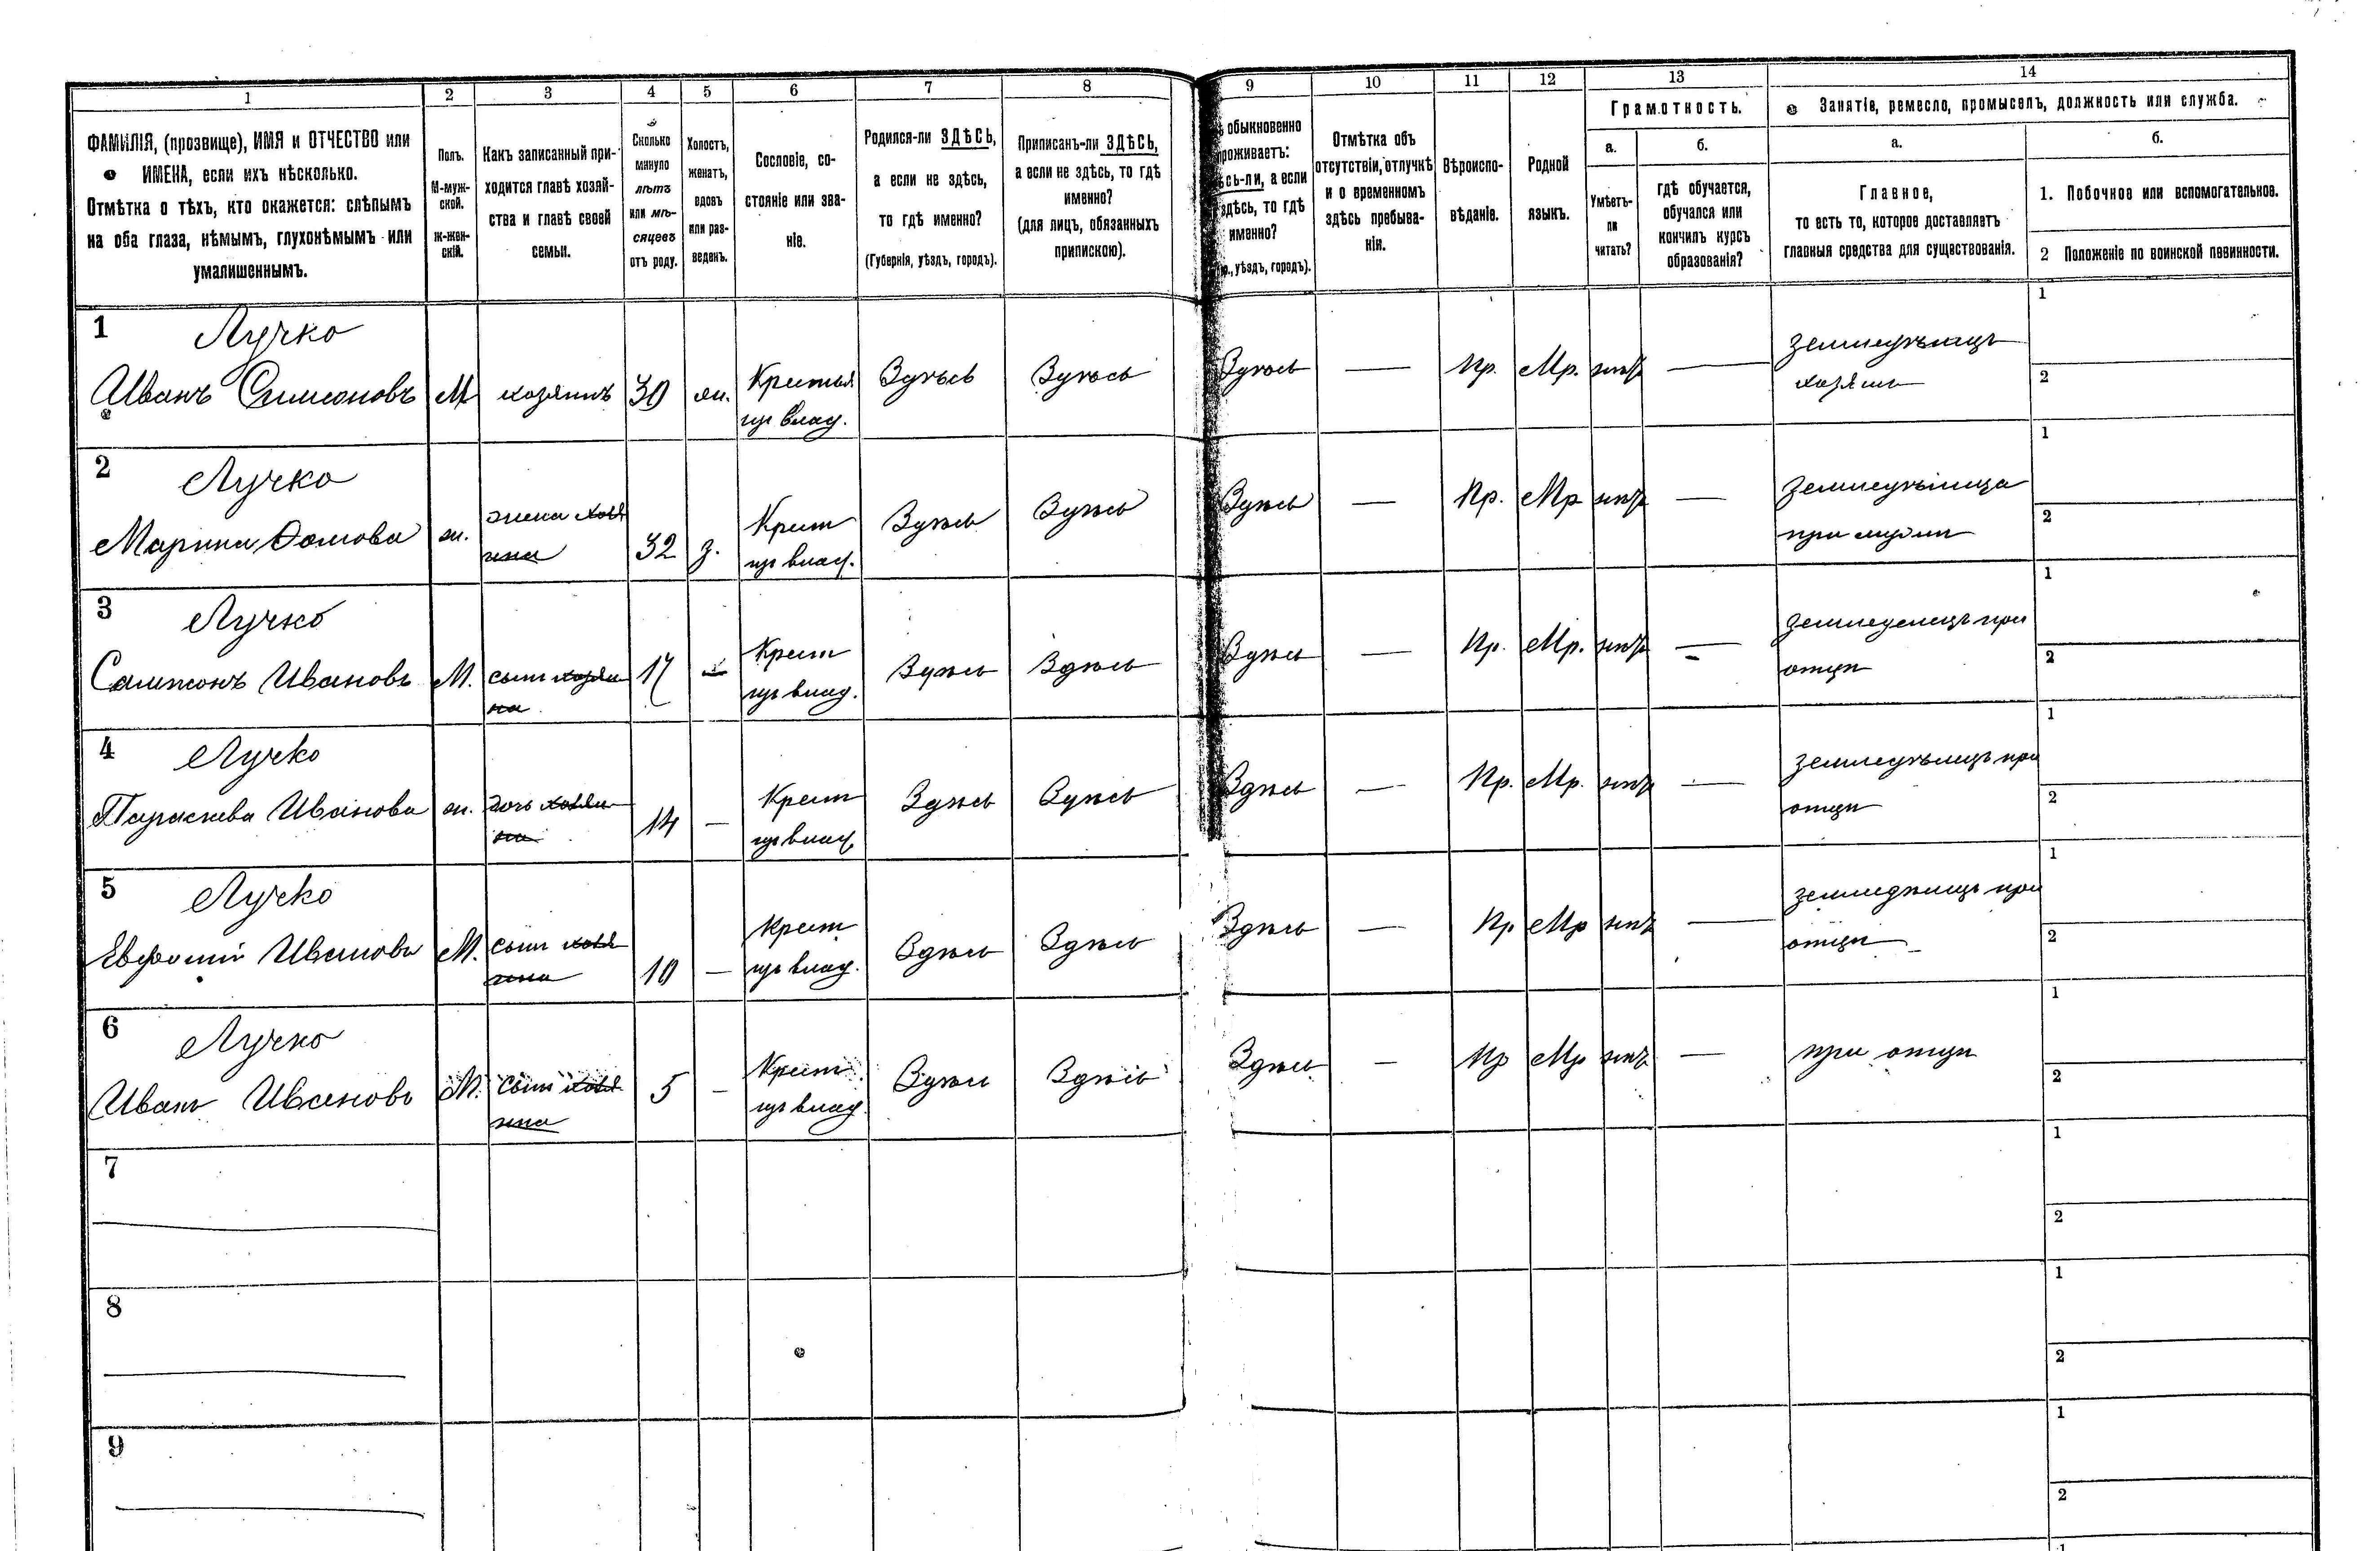 1 2 3 4 5 6 7 8 9 10 11 12 13 14
ФАМИЛІЯ, (прозвище), ИМЯ и ОТЧЕСТВО или
ИМЕНА, если ихъ нѣсколько.
Отмѣтка о тѣхъ, кто окажется: слѣпымъ
на оба глаза, нѣмымъ, глухонѣмымъ или
умалишеннымъ.
Полъ.
М-муж-
ской.
Ж-жен-
скій.
Какъ записанный при-
ходится главѣ хозяй-
ства и главѣ своей
семьи.
Сколько
минуло
лѣтъ
или мѣ-
сяцевъ
отъ роду.
Холостъ,
женатъ,
вдовъ
или раз-
веденъ.
Сословіе, со-
стояніе или зва-
ніе.
Родился-ли ЗДѢСЬ,
а если не здѣсь,
то гдѣ именно?
(Губернія, уѣздъ, городъ).
Приписанъ-ли ЗДѢСЬ,
а если не здѣсь, то гдѣ
именно?
(для лицъ, обязанныхъ
припискою).
обыкновенно
роживаетъ:
сь-ли, а если
здѣсь, то гдѣ
именно?
уѣздъ, городъ).
Отмѣтка объ
отсутствіи, отлучкѣ
и о временномъ
здѣсь пребыва-
ніи.
Вѣроиспо-
вѣданіе.
Родной
языкъ.
Грамотность.
а.
Умѣетъ-
ли
читать?
б.
гдѣ обучается,
обучался или
кончилъ курсъ
образованія?
Занятіе, ремесло, промыселъ, должность или служба.
а.
Главное,
то есть то, которое доставляетъ
главныя средства для существованія.
б.
1. Побочное или вспомогательное.
2 Положеніе по воинской повинности.
1 Лучко
Иванъ Симеоновъ М хозяинъ 30 жн. Крестья Здѣсь Здѣсь Здѣсь — Пр. Мр. нѣтъ — земледѣлецъ 1
хозяинъ 2
2 Лучко
Марина ж. жена хозя 32 з. Крест Здѣсь Здѣсь Здѣсь — Пр. Мр нѣтъ — земледѣлица 1
ина при мужѣ 2
3 Лучко
Сампсонъ Ивановъ М. сынъ хозяи 17 Крест Здѣсь Здѣсь Здѣсь — Пр. Мр. нѣтъ — земледелецъ при 1
на отцѣ 2
4 Лучко
Параскева Иванова ж. дочь хозяи 14 — Крест Здѣсь Здѣсь Здѣсь — Пр. Мр. нѣтъ — земледѣлецъ при 1
на отцѣ 2
5 Лучко
Евфимій Ивановъ М. сынъ хозя 10 — Крест Здѣсь Здѣсь Здѣсь — Пр Мр нѣтъ — земледѣлецъ при 1
ина отцѣ 2
6 Лучко
Иванъ Ивановъ М. сынъ хозя 5 — Крест Здѣсь Здѣсь Здѣсь — Пр Мр нѣтъ — при отцѣ 1
ина 2
7 1
2
8 1
2
9 1
2